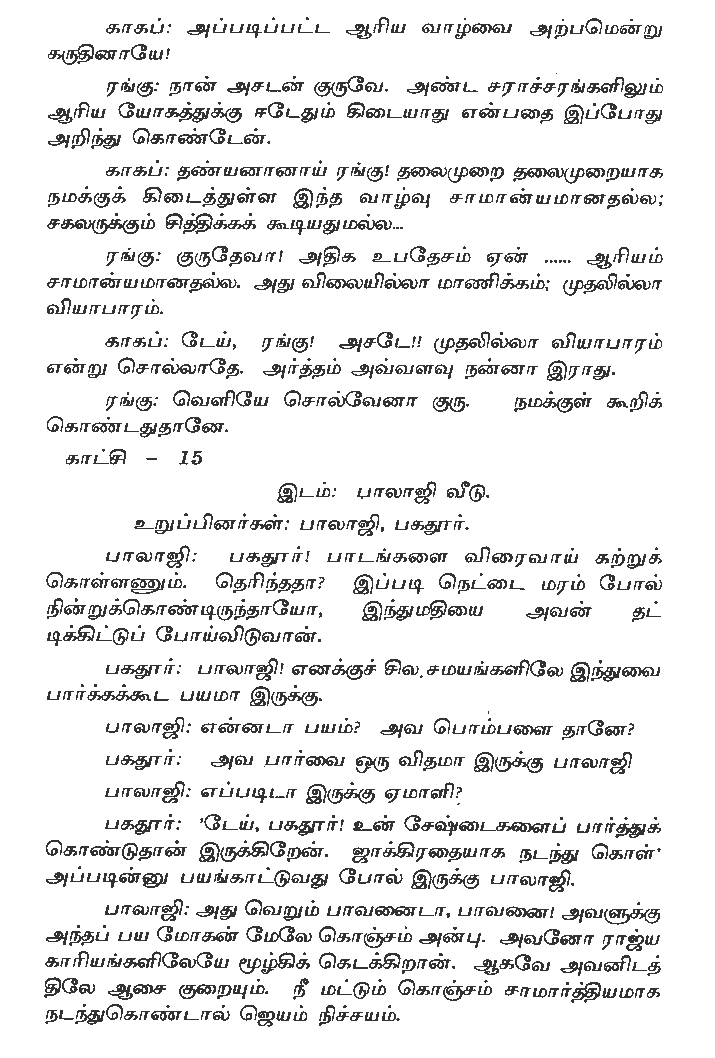 காகப்: அப்படிப்பட்ட ஆரிய வாழ்வை அற்பமென்று
கருதினாயே!
ரங்கு: நான் அசடன் குருவே. அண்ட சராச்சரங்களிலும்
ஆரிய யோகத்துக்கு ஈடேதும் கிடையாது என்பதை இப்போது
அறிந்து கொண்டேன்.
காகப்: தண்யனானாய் ரங்கு! தலைமுறை தலைமுறையாக
நமக்குக் கிடைத்துள்ள இந்த வாழ்வு சாமான்யமானதல்ல;
சகலருக்கும் சித்திக்கக் கூடியதுமல்ல...
ரங்கு: குருதேவா! அதிக உபதேசம் ஏன் ...... ஆரியம்
சாமான்யமானதல்ல. அது விலையில்லா மாணிக்கம்; முதலில்லா
வியாபாரம்.
காகப்: டேய், ரங்கு! அசடே!! முதலில்லா வியாபாரம்
என்று சொல்லாதே. அர்த்தம் அவ்வளவு நன்னா இராது.
ரங்கு: வெளியே சொல்வேனா குரு. நமக்குள் கூறிக்
கொண்டதுதானே.
காட்சி – 15
இடம்: பாலாஜி வீடு.
உறுப்பினர்கள்: பாலாஜி, பகதூர்.
பாலாஜி: பகதூர்! பாடங்களை விரைவாய் கற்றுக்
கொள்ளணும். தெரிந்ததா? இப்படி நெட்டை மரம் போல்
நின்றுக்கொண்டிருந்தாயோ, இந்துமதியை அவன் தட்
டிக்கிட்டுப் போய்விடுவான்.
பகதூர்: பாலாஜி! எனக்குச் சில சமயங்களிலே இந்துவை
பார்க்கக்கூட பயமா இருக்கு.
பாலாஜி: என்னடா பயம்? அவ பொம்பளை தானே?
பகதூர்: அவ பார்வை ஒரு விதமா இருக்கு பாலாஜி
பாலாஜி: எப்படிடா இருக்கு ஏமாளி?
பகதூர்: 'டேய், பகதூர்! உன் சேஷ்டைகளைப் பார்த்துக்
கொண்டுதான் இருக்கிறேன். ஜாக்கிரதையாக நடந்து கொள்'
அப்படின்னு பயங்காட்டுவது போல் இருக்கு பாலாஜி.
பாலாஜி: அது வெறும் பாவனைடா, பாவனை! அவளுக்கு
அந்தப் பய மோகன் மேலே கொஞ்சம் அன்பு. அவனோ ராஜ்ய
காரியங்களிலேயே மூழ்கிக் கெடக்கிறான். ஆகவே அவனிடத்
திலே ஆசை குறையும். நீ மட்டும் கொஞ்சம் சாமார்த்தியமாக
நடந்துகொண்டால் ஜெயம் நிச்சயம்.